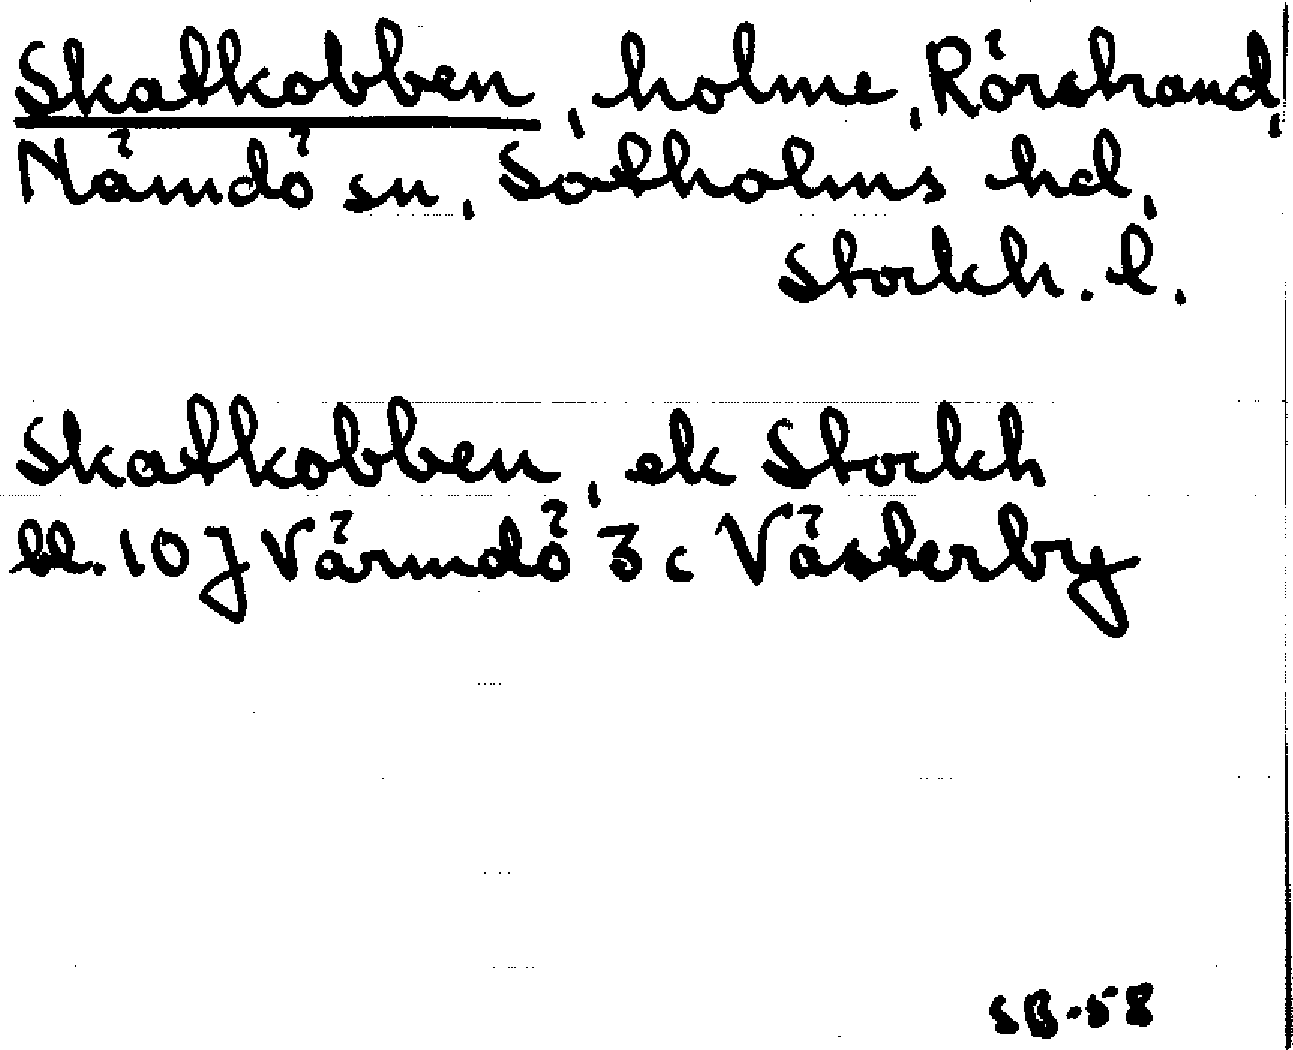 Skatkobben, holme, Rörstrand,
Nämdö sn, Sotholms hd,
Stockh. l.
Skatkobben, ek Stockh
bl. 10 J Värmdö 3 c Västerby
SB-58